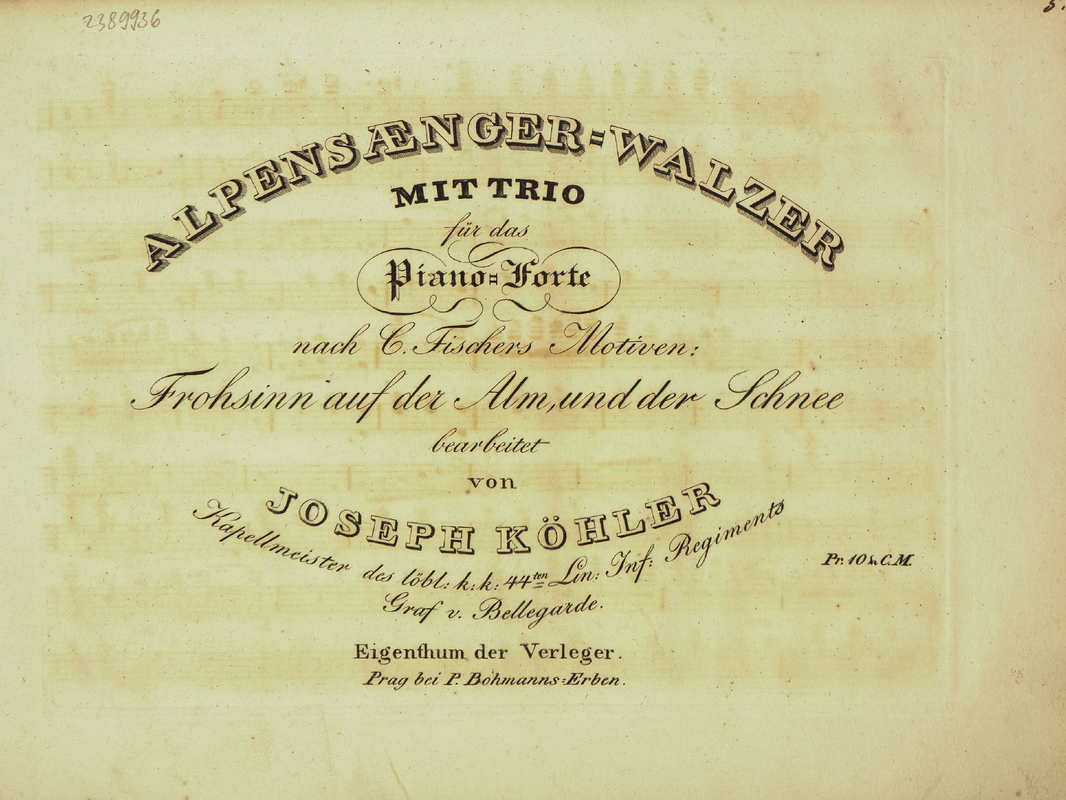 2389936
ALPENSÆNGER=WALZER
MIT TRIO
für das
Piano=Forte
nach C. Fischers Motiven:
Frohsinn auf der Alm, und der Schnee
bearbeitet
von
JOSEPH KÖHLER
Kapellmeister des löbl: k: k: 44ten Lin: Inf: Regiments
Graf v. Bellegarde.
Pr. 10 k C.M.
Eigenthum der Verleger.
Prag bei P. Bohmanns=Erben.